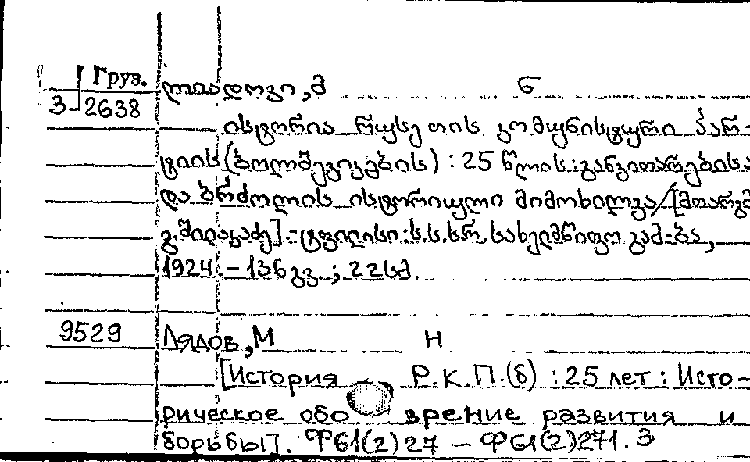 Груз.
ლიადოვი, მ ნ
3-2638
ისტორია რუსეთის კომუნისტური პარ-
ტიის (ბოლშევიკების) : 25 წლის : განვითარებისა
და ბრძოლის ისტორიული მიმოხილვა/[მთარგმ
გ. შილაკაძე] -ტფილისი : ს.ს.ს.რ. სახელმწიფო. გამ-ბა,
1924 - 136 გვ ; 22 სმ.
9529 Лядов, М Н
[История Р.К.П.(б) : 25 лет : Исто-
рическое обозрение развития и
борьбы]. Ф61(2)27 - Ф61(2)271.3